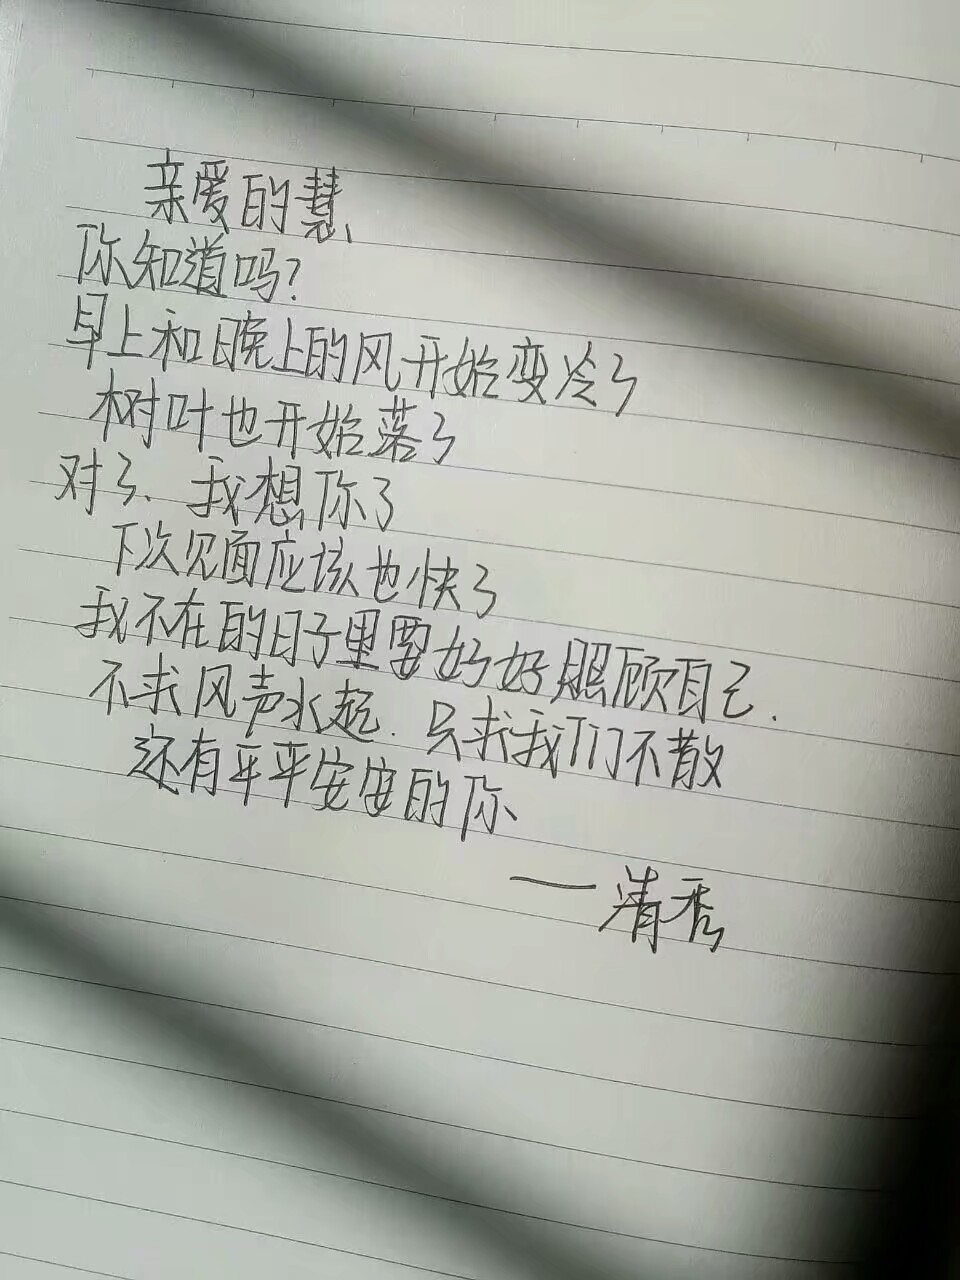 亲爱的慧、
你知道吗?
早上和晚上的风开始变冷了
树叶也开始落了
对了、我想你了
下次见面应该也快了
我不在的日子里要好好照顾自己.
不求风声水起.只求我们不散
还有平平安安的你、
——清秀